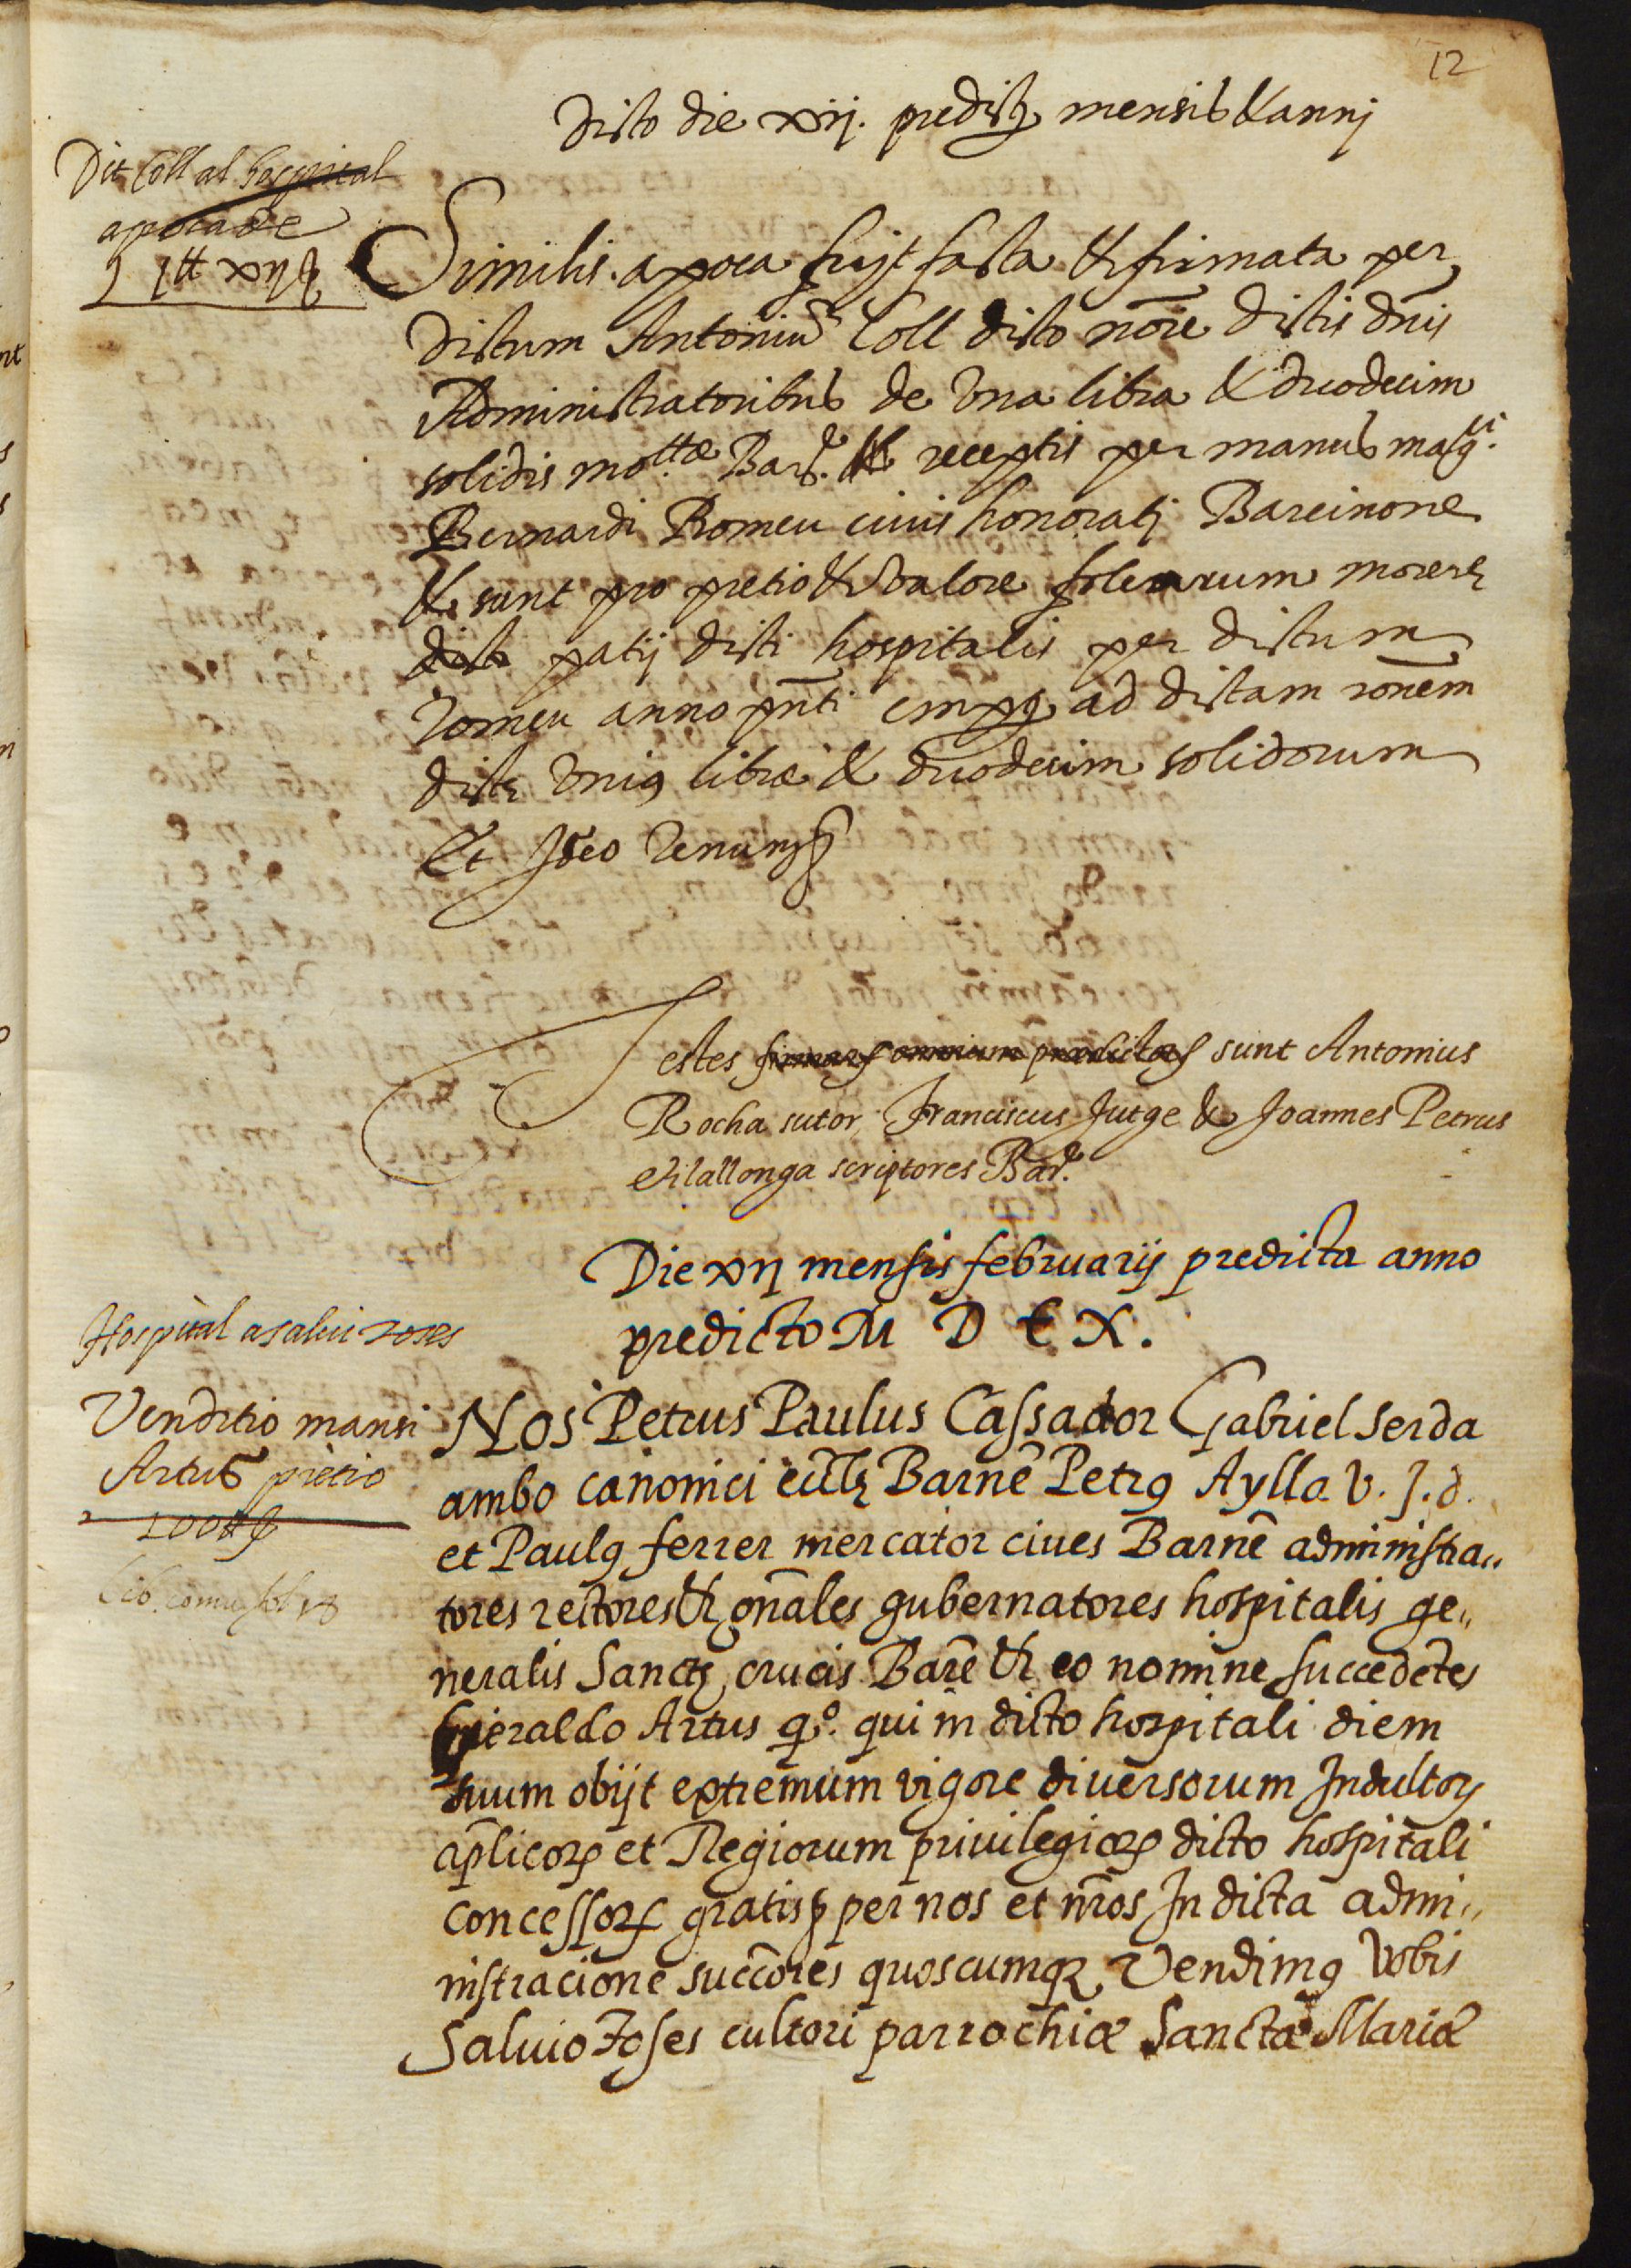 12
Dicto die xij. predictȩ mensis & annj
Dit Coll al hospital
apoca de
j ltt xij s
Similis apoca fuit facta & firmata per
dictum Antoniū Coll dicto nōie dictis dn̄is
Administratoribus de Vna libra & duodecim
solidis mo^ttae Bar^e. receptis per manus mag^ci.
Bernardi Romeu ciuis honoratj Barcinone
& sunt pro pretio & valore folearum morerȩ
patij dicti hospitalis per dictum
romeu anno pn̄ti ad dictam ronēm
dictȩ Vniꝰ librae & duodecim solidorum
Et Ideo Renuns
Testes firmarū omnium predictorū sunt Antonius
Rocha sutor, Franciscus Jutge & Joannes Petrus
vilallonga scriptores Bar^e.
Die xij mensis februarij predicta anno
predicto M D C X.
Hospital a saluí roses
Venditio mansi
Artus pretio
100 ℔ s
Lib. comu fol 18
Nos Petrus Paulus Cassador Gabriel Serda
ambo canonici ecctȩ Barnē Petrꝰ Aylla V. J. d.
et Paulꝰ ferrer mercator ciues Barnē administra„
tores rectores & gn̄ales gubernatores hospitalis ge„
neralis Sanctȩ crucis Barē & eo nomine succedētes
Gueraldo Artus q^o. qui in dicto hospitali diem
suum obijt extremum vigore diuersorum Indultoꝝ
ap̄licoꝝ et Regiorum priuilegioꝝ dicto hospitali
concessoꝝ gratis ꝑ per nos et nr̄os In dicta admi„
nistracione succ̄ores quoscumqꝫ Vendimꝰ Vobis
Saluio Roses cultori parrochiae Sanctae Mariae